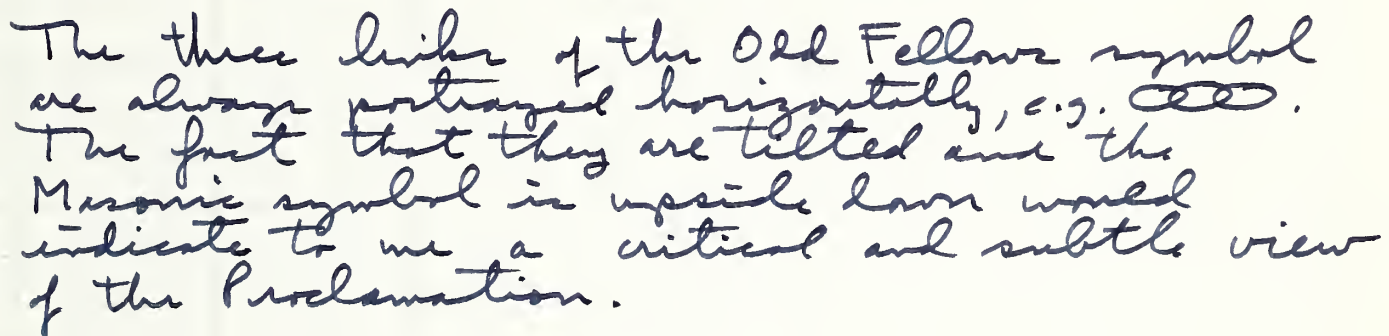 The three links of the Odd Fellows symbol
are always portrayed horizontally, e.g.
The fact that they are tilted and the
Masonic symbol is upside down would
indicate to me a critical and subtle view
of the Proclamation.